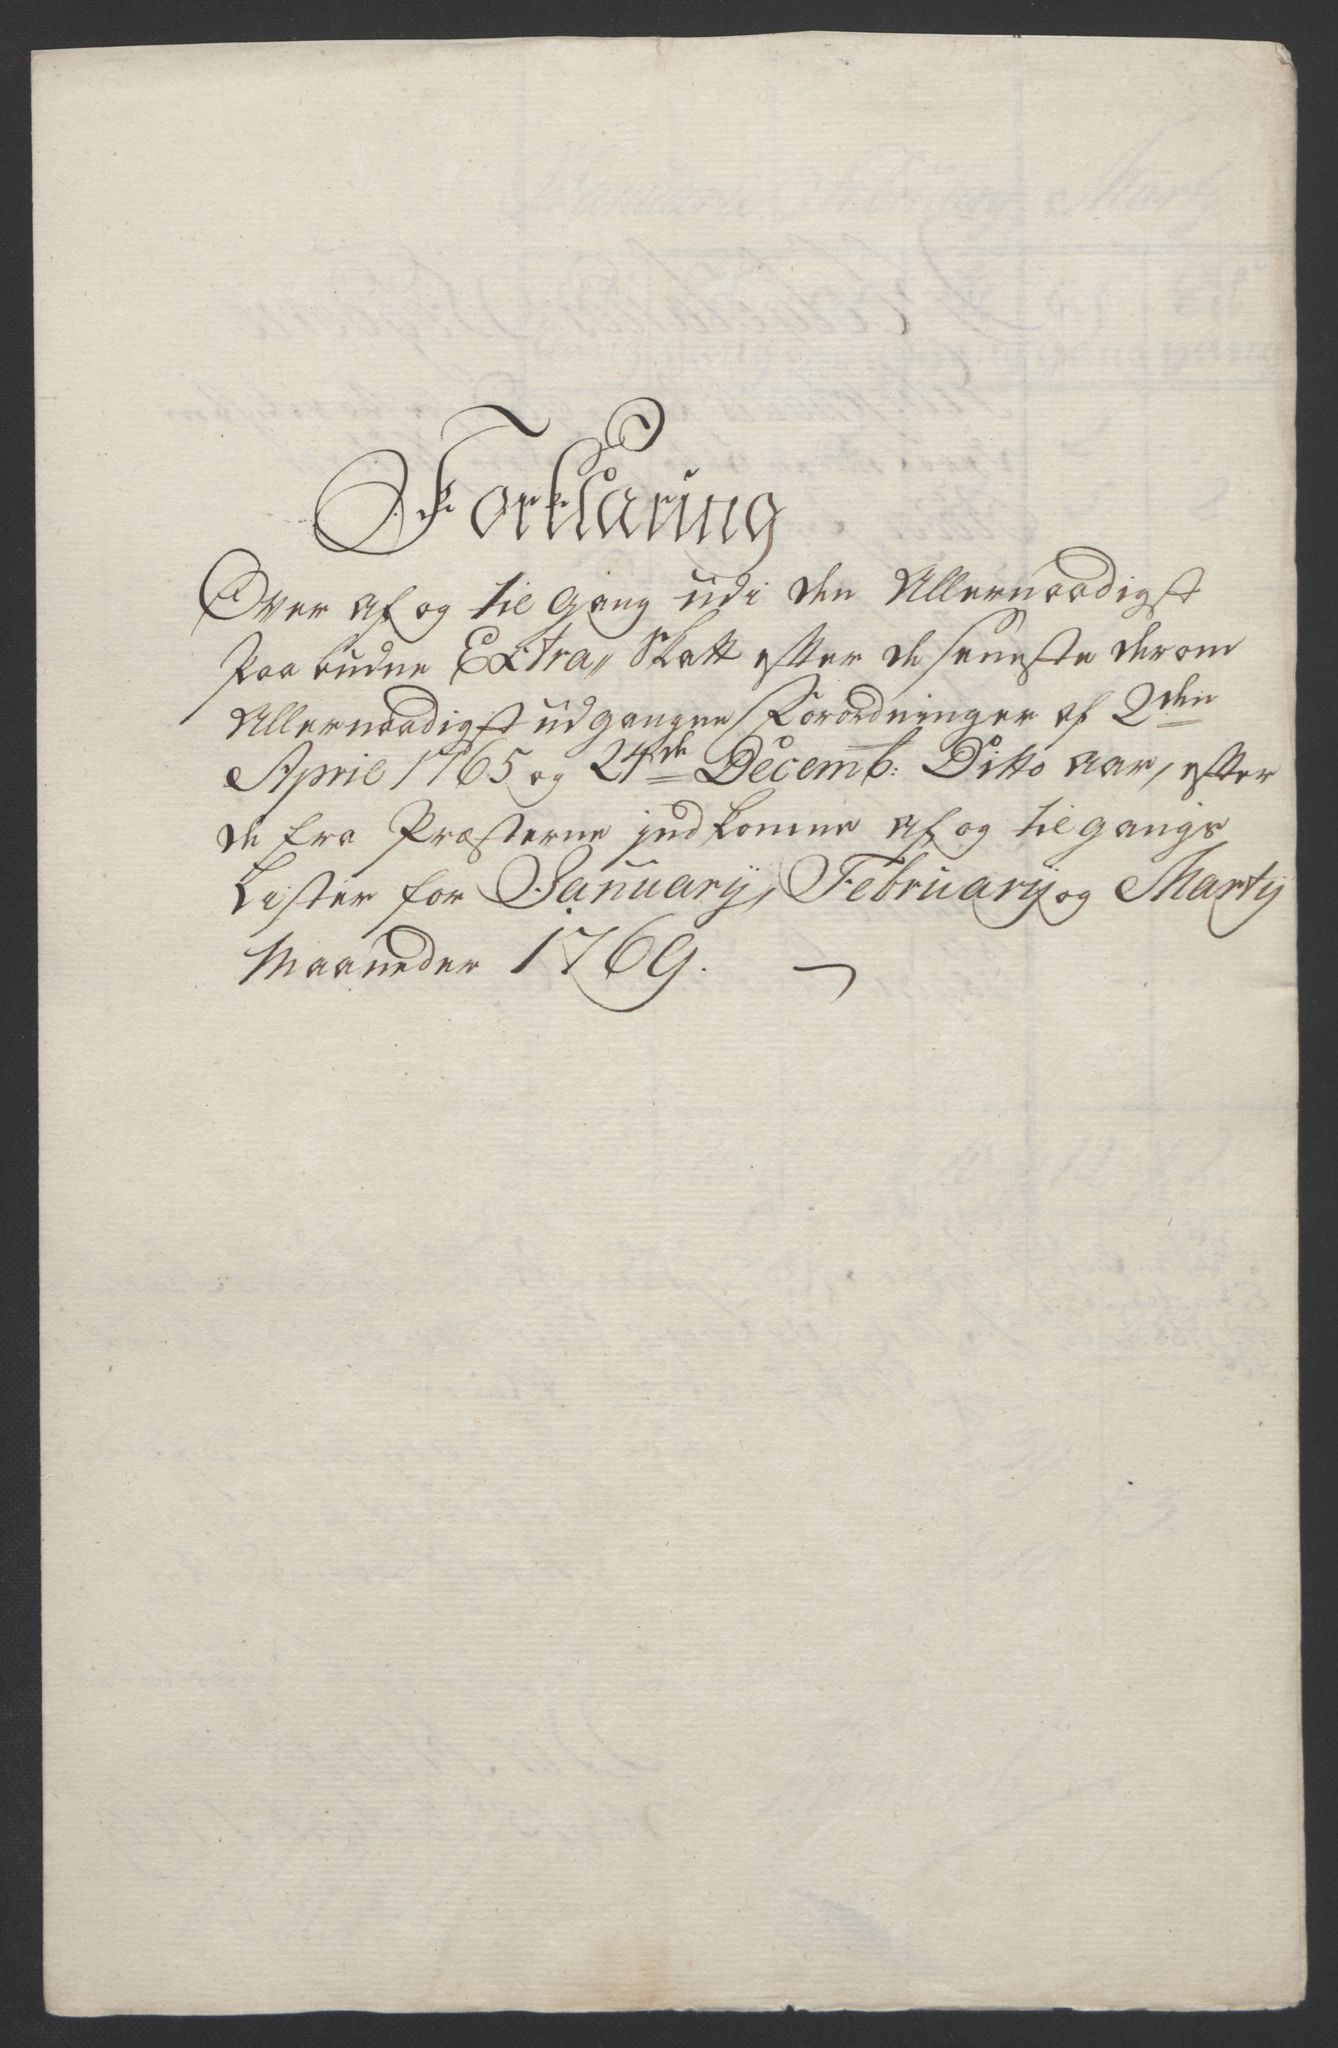 Forklaring
Over af og til gang udi den Allernaadigst
Paa budne Extra„ Skatt efter de seneste derom
Allernaadigst udgangne Forordninger af 2den
April 1765 og 24de Decemb: Ditto aar, efter
de fra Præsterne indkomne af og til gangs
Lister for Januarij, Februarij og Martij
Maaneder 1769.